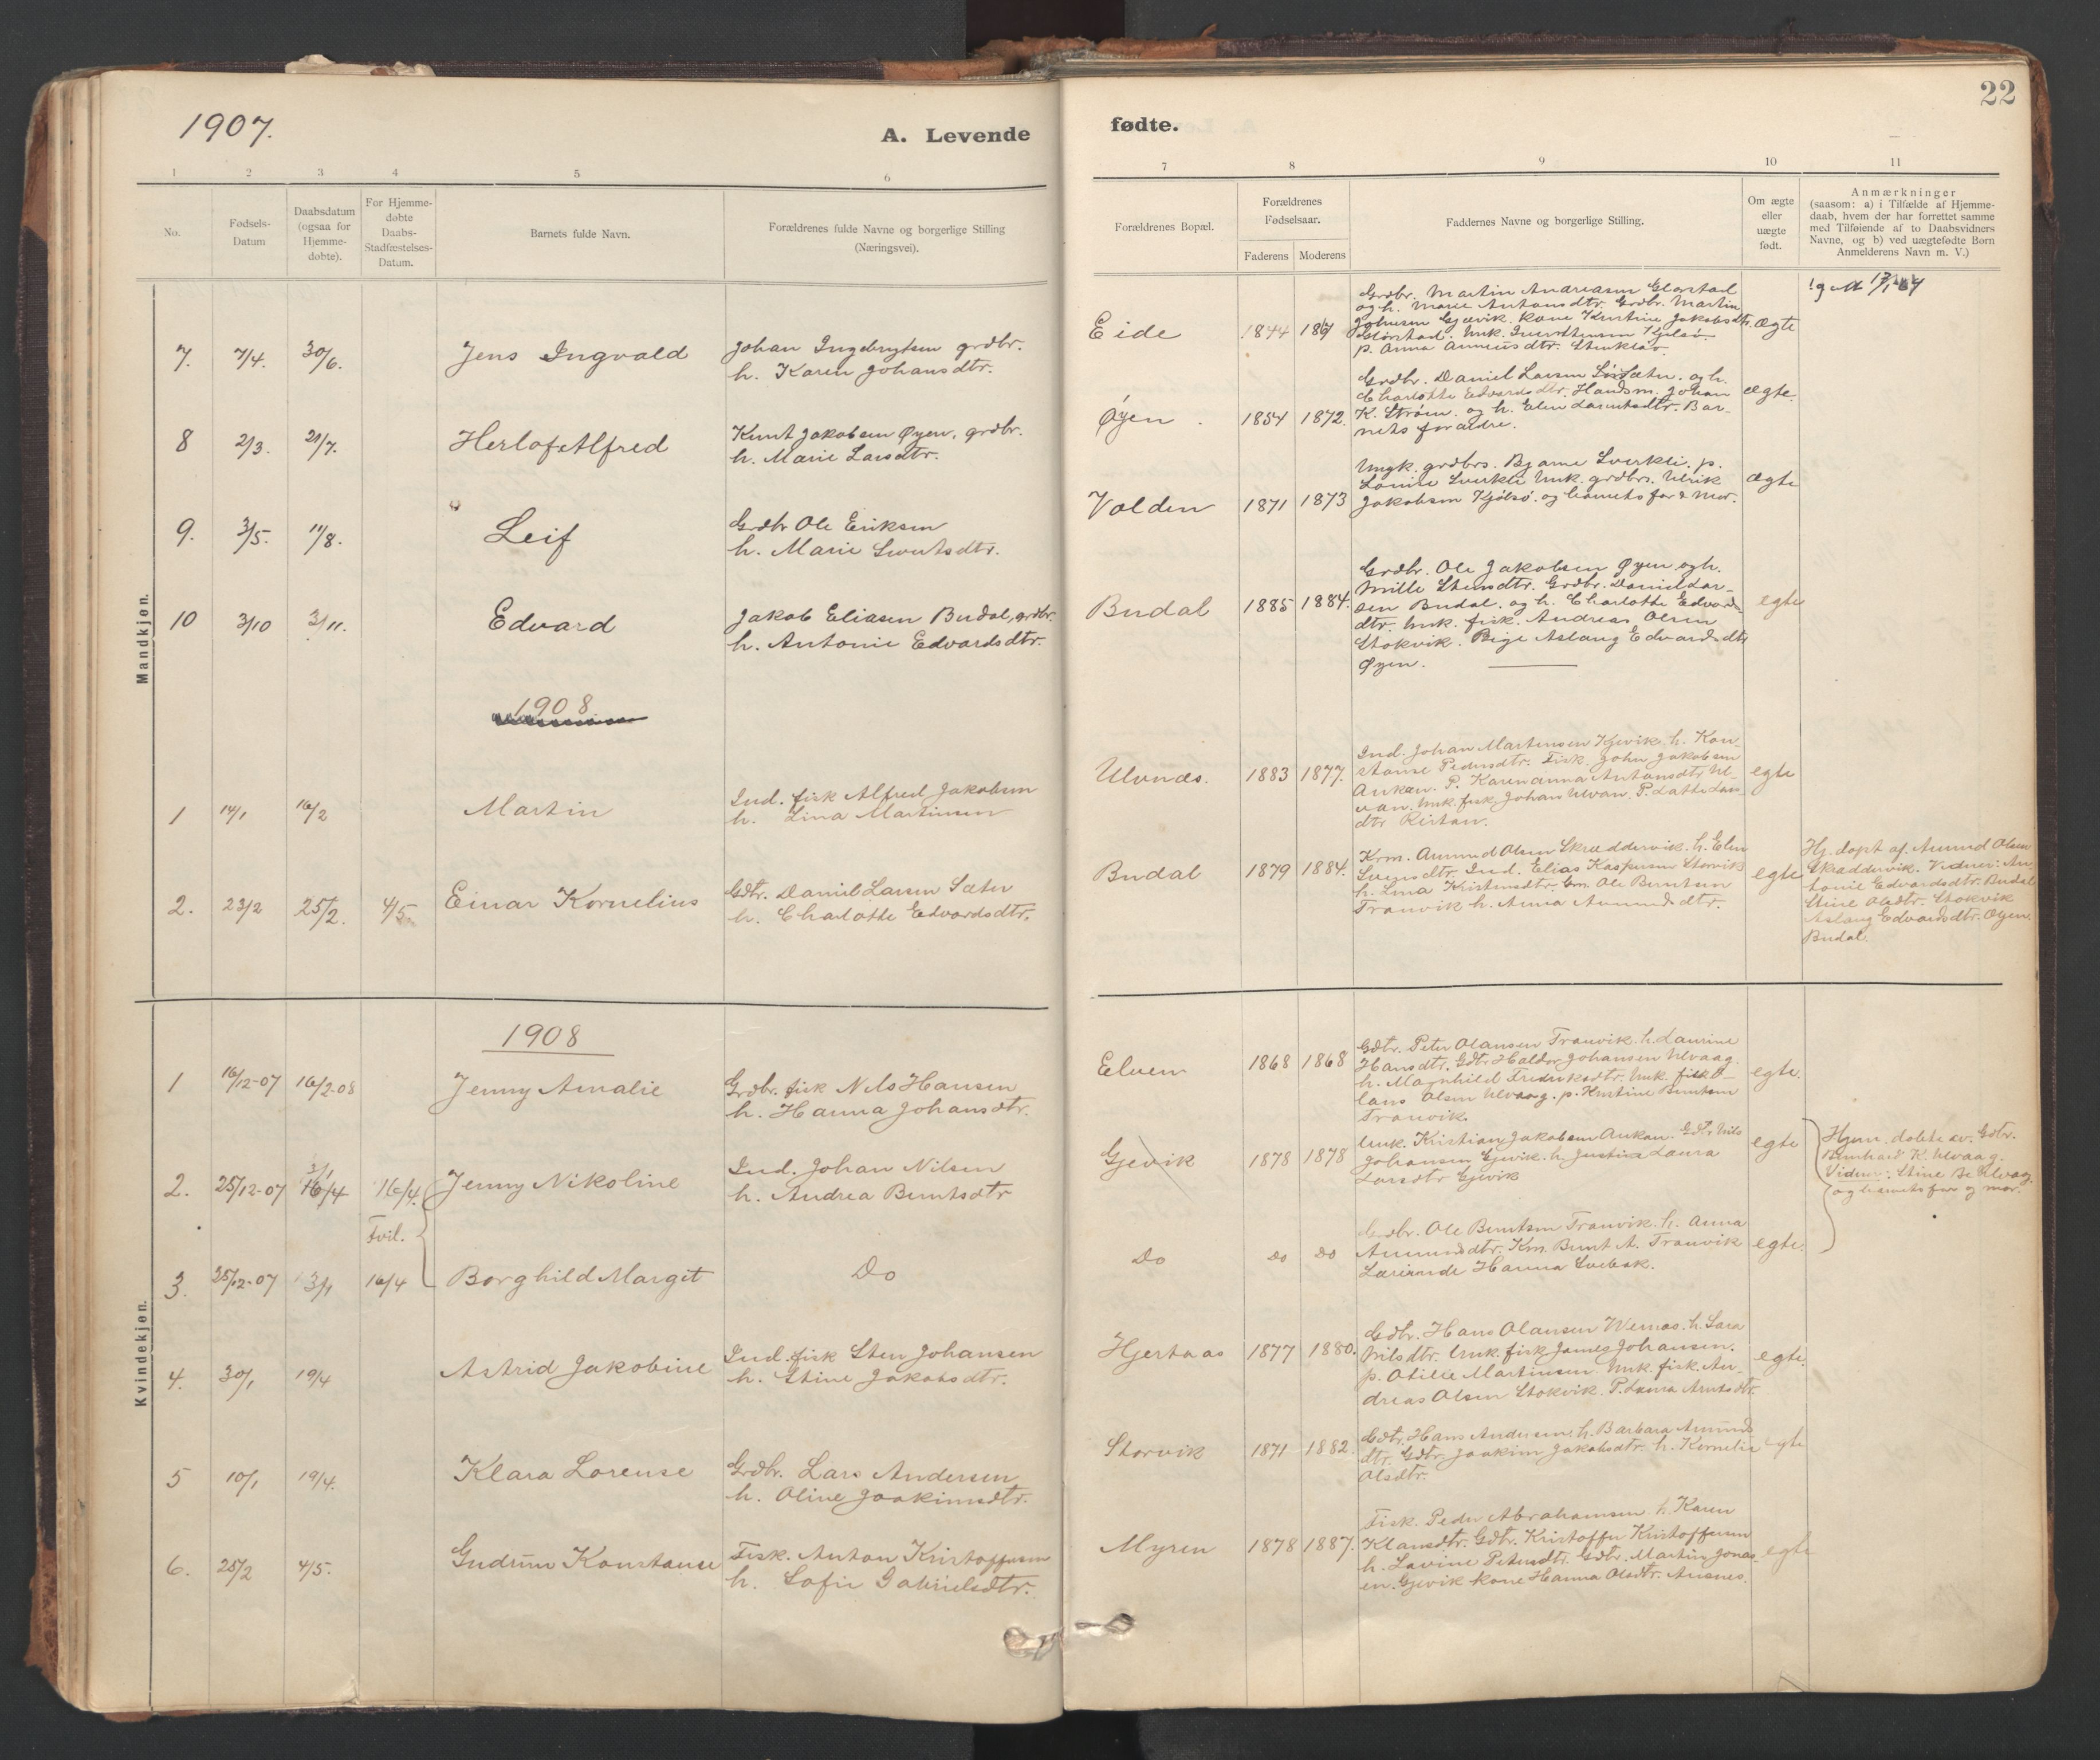 1907.
A. Levende
1 2 3 4 5 6
No.
Fødsels-
Datum
Daabsdatum
(ogsaa for
Hjemme-
døbte).
For Hjemme-
døbte
Daabs-
Stadfæstelses-
Datum.
Barnets fulde Navn.
Forældrenes fulde Navne og borgerlige Stilling
(Næringsvei).
Mandkjøn.
7. 7/4. 30/6. Jens Ingvald
Johan Ingebrigtsen grdbr.
h. Karen Johansdtr.
8 2/3. 21/7. Herlof Alfred
Knut Jakobsen Øyen, grdbr.
h. Marie Larsdtr.
9. 3/5. 11/8. Leif
Grdbr Ole Eriksen
h. Marie Sivertsdtr.
10 3/10 3/11. Edvard
Jakob Eliasen Budal, grdbr.
h. Antonie Edvardsdtr.
1908
1 14/1 16/2 Martin
Ind. fisk Alfred Jakobsen
h. Lina Martinsen
2. 23/2 25/2. 4/5. Einar Kornelius
Gdtr. Daniel Larsen Sæter
h. Charlotte Edvardsdtr.
Kvindekjøn.
1908
1 16/12-07 16/2-08 Jenny Amalie
Grdbr. fisk Nils Hansen
h. Hanna Johansdtr.
2. 25/12-07 3/1 16/4 16/4. Jenny Nikoline
Ind. Johan Nilsen
h. Andrea Berntsdtr
Tvil.
3. 25/12-07 3/1 16/4 Borghild Margit Do
4. 30/1 19/4 Astrid Jakobine
Ind. fisk Sten Johansen
h. Stine Jakobsdtr.
5 10/1 19/4. Klara Lorense
Grdbr. Lars Andersen
h. Oline Joakimsdtr.
6. 25/2 4/5. Gudrun Konstanse
Fisk. Anton Kristoffersen
h. Sofie Gabrielsdtr.
22
fødte.
7 8 9 10 11
Forældrenes Bopæl.
Forældrenes
Fødselsaar.
Faderens Moderens
Faddernes Navne og borgerlige Stilling.
Om ægte
eller
uægte
født.
Anmærkninger
(saasom: a) i Tilfælde af Hjemme-
daab, hvem der har forrettet samme
med Tilføiende af to Daabsvidners
Navne, og b) ved uægtefødte Børn
Anmelderens Navn m. V.)
Eide 1844 ægte
Grdbr. Martin Andreasen Glørstad
og h. Marie Antonsdtr. Grdbr. Martin
Johnsen Gjævik. Kone Kristine Jakobsdtr.
Glørstad. Unk.
p. Anna
Øyen. 1854 1872. ægte.
Grdbr. Daniel Larsen Sæter. og h.
Charlotte Edvardsdtr. Handsm. Johan
K. Strøm. og h. Elen Larntsdtr. Bar-
nets forældre.
Volden 1871 1873 ægte
Ungk. grdbrs. Bjarne Sverkli. p.
Louise Sverkli Unk. grdbrs. Ulrik
Jakobsen Kjølsø. og barnets far & mor.
Budal 1885 1884. egte
Grdbr. Ole Jakobsen Øyen og h.
Mille Stensdtr. Grdbr. Daniel Lar-
sen Budal. og h. Charlotte Edvards-
dtr. Unk. fisk. Andreas Olsen
Stokvik. Pige Aslaug Edvardsdtr
Øyen.
Ulvnæs. 1883 1877. egte
Ind. Johan Martensen Kjevik. h. Kon-
stanse Pedersdtr. Fisk. John Jakobsen
Aukan. P. Karenanna Antonsdtr Ul-
van. Unk. fisk Johans Ulvan. P. Latte Lars-
dtr Ristan.
Budal 1879 1884. egte
Krm. Amund Olsen Skræddervik. h. Elen
Svensdtr. Ind. Elias Kaspersen Storvik
h. Lina Kristensdtr. Gm. Ole Berntsen
Tranvik h. Anna Amundsdtr.
Hj. døpt af Amund Olsen
Skraddervik. Vidner: An-
tonie Edvardsdtr. Budal
Stine Olsdtr. Stokvik
Aslaug Edvardsdtr. Øyen.
Budal.
Elven 1868 1868 egte.
Gdtr. Peter Olausen Tranvik. h. Laurine
Hansdtr. Gdtr. Haldor Johansen Ulvaag.
h. Magnhild Fredriksdtr. Unk. fisk O-
laus Olsen Ulvaag. p. Kristine Berntsen
Tranvik.
Gjevik 1878 1878 egte
Unk. Kristian Jakobsen Aukan. Gdtr Nils
Johansen Gjevik. h. Justina Laura
Larsdtr Gjevik
Hjem. døbte av. Gdtr.
Bernhard K. Ulvaag.
Vidner: Stine B. Ulvaag.
og barnets far og mor.
Do Do Do egte.
Grdbr. Ole Berntsen Tranvik. h. Anna
Amundsdtr. Km. Bernt A. Tranvik
Lærerinde Hanna Svebak.
Hjertaas 1877 1880. egte.
Gdbr. Hans Olausen Wernes. h. Sara
Nilsdtr. Unk. fisk James Johansen.
p. Otilie Martinsen. Unk. fisk. An-
dreas Olsen Stokvik. P. Laura Arntsdtr.
Storvik 1871 1882. egte
Gdtr. Hans Andersen. h. Barbara Amunds
dtr. Gdtr. Joakim Jakobsdtr. h. Kornelie
Olsdtr.
Myren 1878 1887. egte
Fisk. Peder Abrahamsen h. Karen
Klausdtr. Gdtr. Kristoffer Kristoffersen
h. Lovine Petersdtr. Gdtr. Martin Jonas-
en. Gjevik kone Hanna Olsdtr. Ausnes.